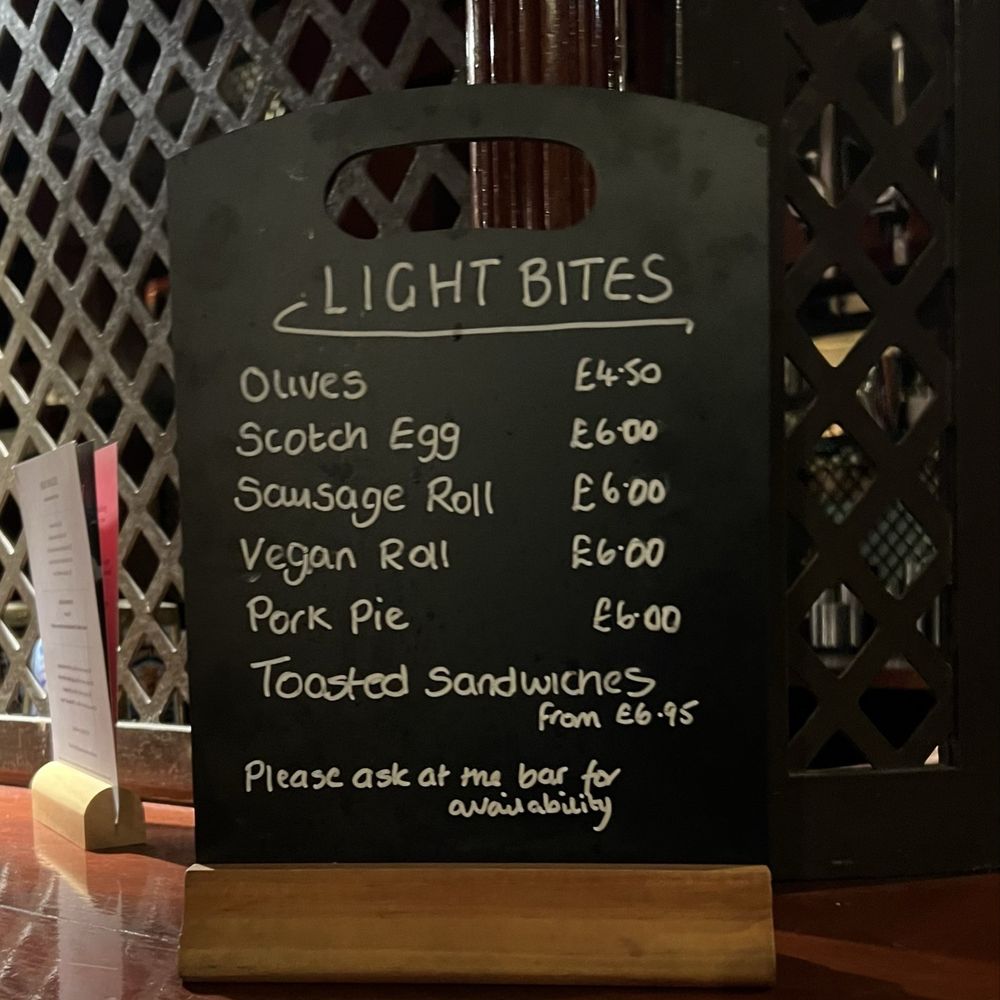 LIGHT BITES
Olives £4.50
Scotch Egg £6.00
Sausage Roll £6.00
Vegan Roll £6.00
Pork Pie £6.00
Toasted Sandwiches
from £6.95
Please ask at the bar for
availability